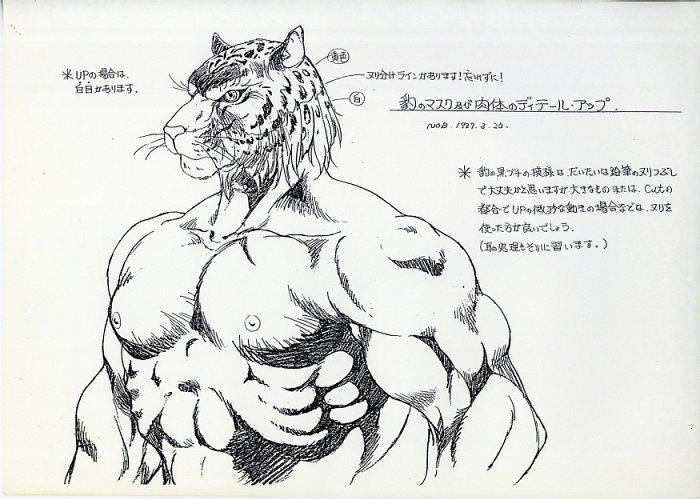 ※ UPの場合は、
白目があります。
黄色
白
ヌリ分けラインがあります!忘れずに!
豹のマスク及び肉体のディテール・アップ.
NOB. 1987. 3. 20.
※ 豹の黒ブチの模様は、だいたいは鉛筆のヌリつぶし
で大丈夫かと思いますが大きなものまたは、Cutの
都合でUPの微妙な動きの場合などは、ヌリを
使った方が良いでしょう。
(耳の処理もそれに習います。)